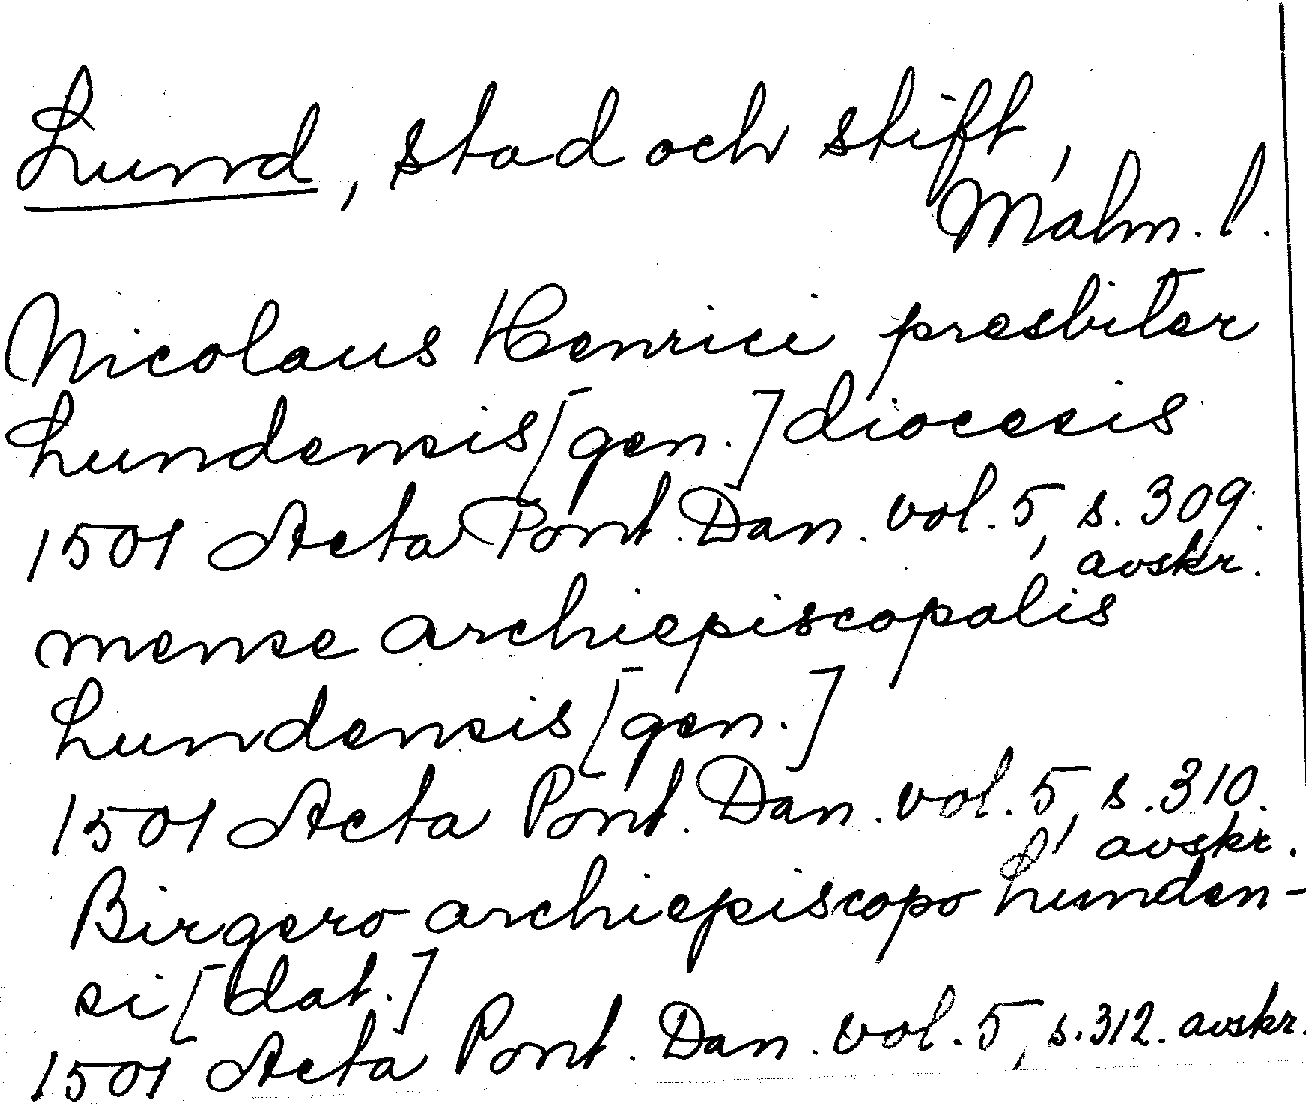 Lund, stad och stift,
Malm. l.
Nicolaus Henrici presbiter
Lundensis [gen.] diocesis
1501 Acta Pont. Dan. vol. 5, s. 309.
avskr.
mense archiepiscopalis
Lundensis [gen.]
1501 Acta Pont. Dan. vol. 5, s. 310.
avskr.
Birgero archiepiscopo Lunden-
si [dat.]
1501 Acta Pont. Dan. vol. 5, s. 312. avskr.